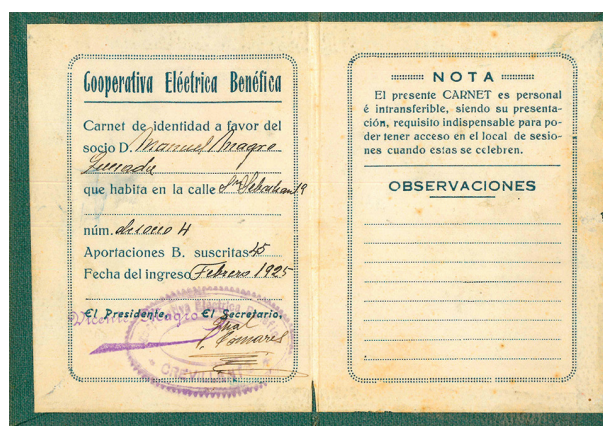 Cooperativa Eléctrica Benéfica
Carnet de identidad a favor del
socio D. Manuel Magro
que habita en la calle Sn Sebastian 19
núm. 4
Aportaciones B. suscritas 45
Fecha del ingreso Febrero 1925
El Presidente, El Secretario,
Vicente Magro
Pomares
CREVILLENTE
NOTA
El presente CARNET es personal
é intransferible, siendo su presenta-
ción, requisito indispensable para po-
der tener acceso en el local de sesio-
nes cuando estas se celebren.
OBSERVACIONES